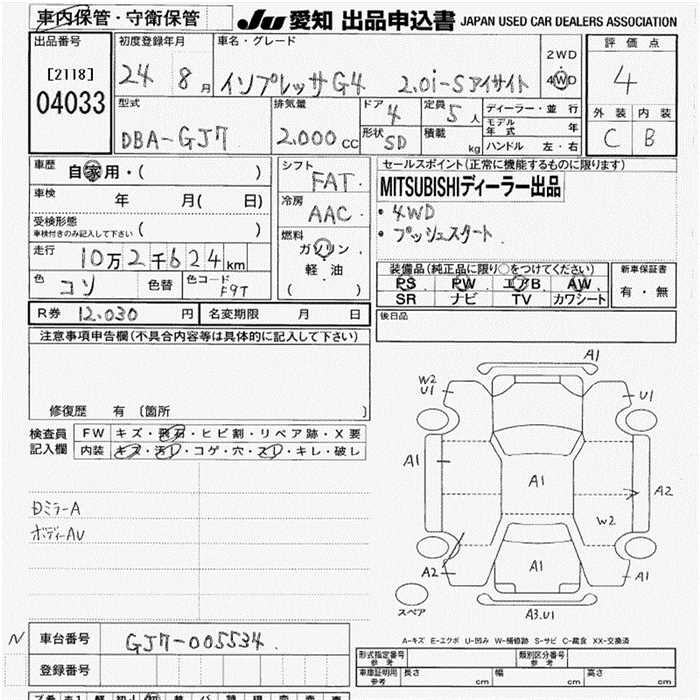 車内保管・守衛保管
JU 愛知 出品申込書 JAPAN USED CAR DEALERS ASSOCIATION
出品番号 初度登録年月 車名・グレード 評価点
[2118] 24 8月 インプレッサG4 2.0i-Sアイサイト 2WD 4WD 4
04033 型式 排気量 ドア 定員 ディーラー・並行 外装 内装
DBA-GJ7 2.000cc 4 5人 モデル年式 年 C B
形状 SD 積載 kg ハンドル 左・右
車歴 自家用・( ) シフト FAT セールスポイント(正常に機能するものに限ります)
車検 年 月( 日) 冷房 AAC MITSUBISHIディーラー出品
受検形態 車検付きのみ記入して下さい ( ) ・4WD
燃料 ガソリン ・プッシュスタート
走行 10万2千624km 軽・油 ( )
装備品(純正品に限り○をつけてください) 新車保証書
色 コン 色替 色コード F9T PS PW エアB AW 有・無
SR ナビ TV カワシート
R券 12.030円 名変期限 月 日 後日品
注意事項申告欄(不具合内容等は具体的に記入して下さい)
修復歴 有 〔箇所 〕
検査員記入欄 FW キズ・飛石・ヒビ割・リペア跡・X要
内装 キズ・汚レ・コゲ・穴・スレ・キレ・破レ
DミラーA
ボディーAU
A1
W2
U1
U1
A1
A1
A2
W2
A2
A1
A1
スペア
A3.U1
A-キズ E-エクボ U-凹み W-補修跡 S-サビ C-腐食 XX-交換済
N 車台番号 GJ7-005534
登録番号
形式指定番号 参考 類別区分番号 参考
車庫証明用 参考 長さ cm 幅 cm 高さ cm